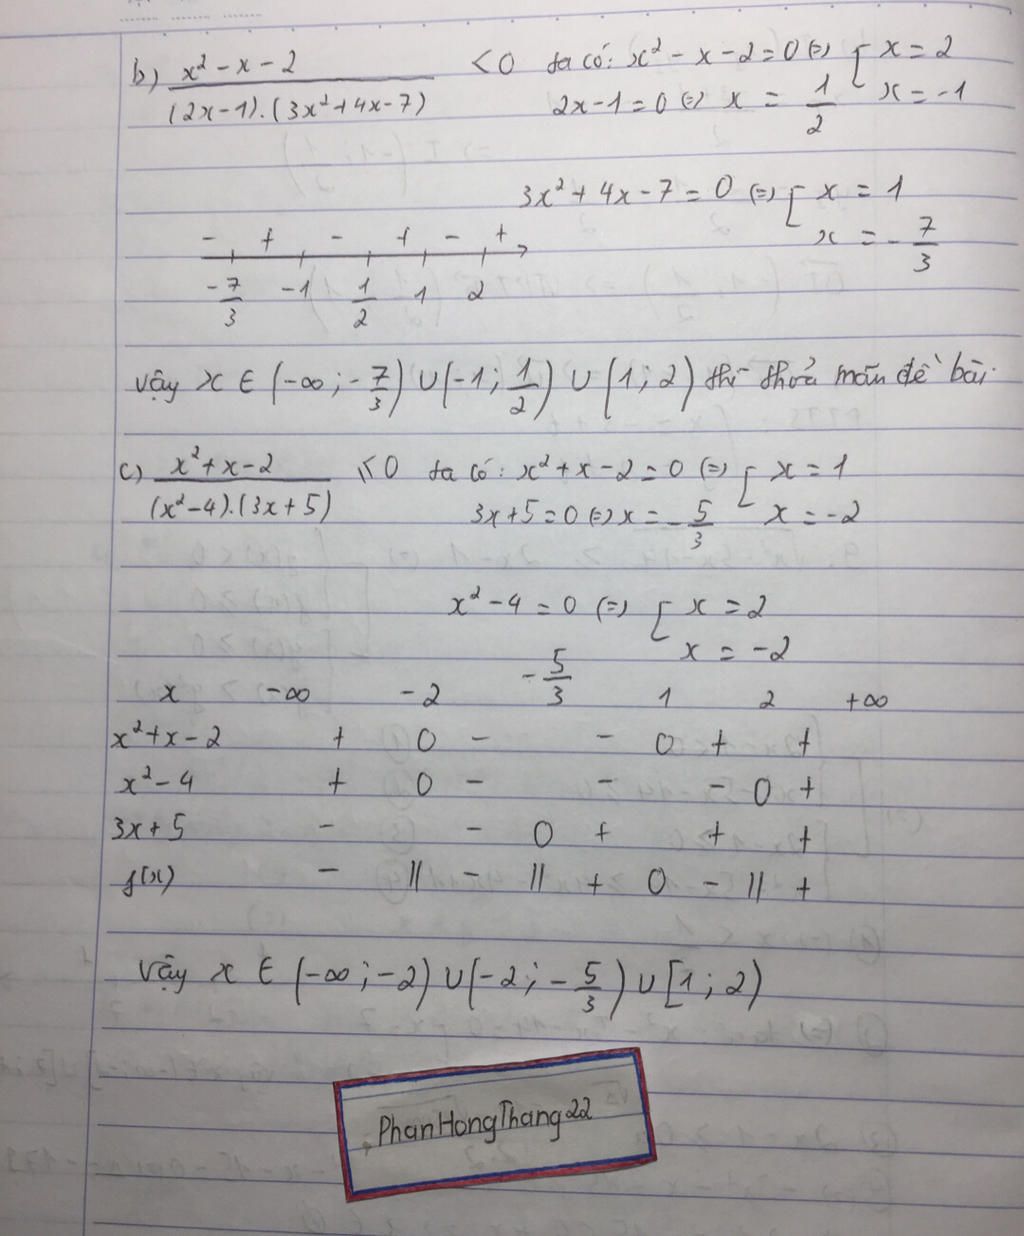 b) (x² - x - 2)/((2x-1).(3x²+4x-7)) < 0 ta có: x² - x - 2 = 0 (=) [ x = 2
x = -1
2x-1 = 0 (=) x = 1/2
3x² + 4x - 7 = 0 (=) [ x = 1
x = -7/3
- + - + - +
-7/3 -1 1/2 1 2
Vậy x ∈ (-∞; -7/3) ∪ (-1; 1/2) ∪ (1; 2) thì thoả mãn đề bài.
c) (x²+x-2)/((x²-4).(3x+5)) ⩽ 0 ta có: x² + x - 2 = 0 (=) [ x = 1
x = -2
3x+5 = 0 (=) x = -5/3
x² - 4 = 0 (=) [ x = 2
x = -2
x -∞ -2 -5/3 1 2 +∞
x²+x-2 + 0 - - 0 + +
x²-4 + 0 - - - 0 +
3x+5 - - 0 + + +
f(x) - || - || + 0 - || +
Vậy x ∈ (-∞; -2) ∪ (-2; -5/3) ∪ [1; 2)
PhanHongThang22